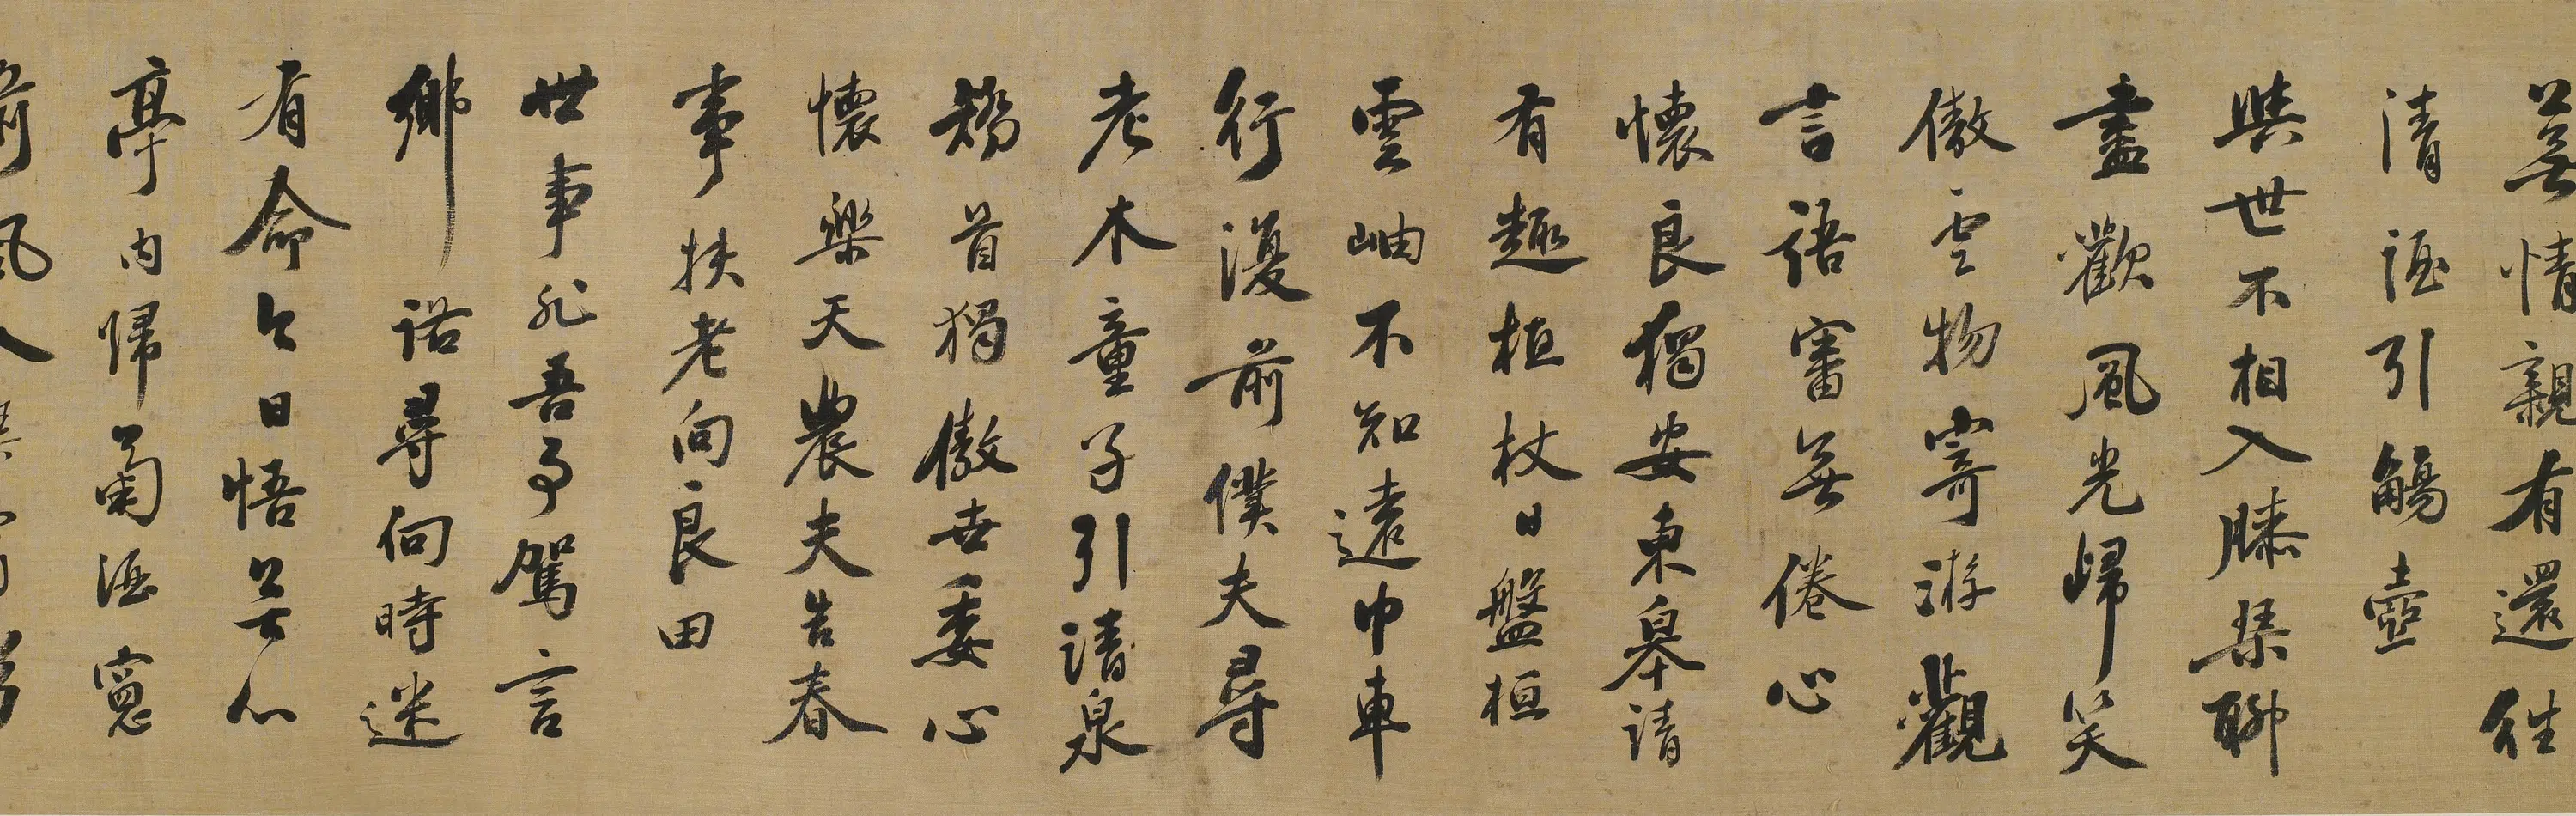 無情親有還往
清酒引觴壺
與世不相入膝琴聊
盡歡風光歸笑
傲雲物寄游觀
言語審無倦心
懷良獨安東皋請
有趣植杖日盤桓
雲岫不知遠巾車
行復前僕夫尋
老木童子引清泉
矯首獨傲世委心
懷樂天農夫告春
事扶老向良田
世事非吾事駕言
鄉路尋向時迷
有命今日悟無心
亭內歸菊酒窗
前風入